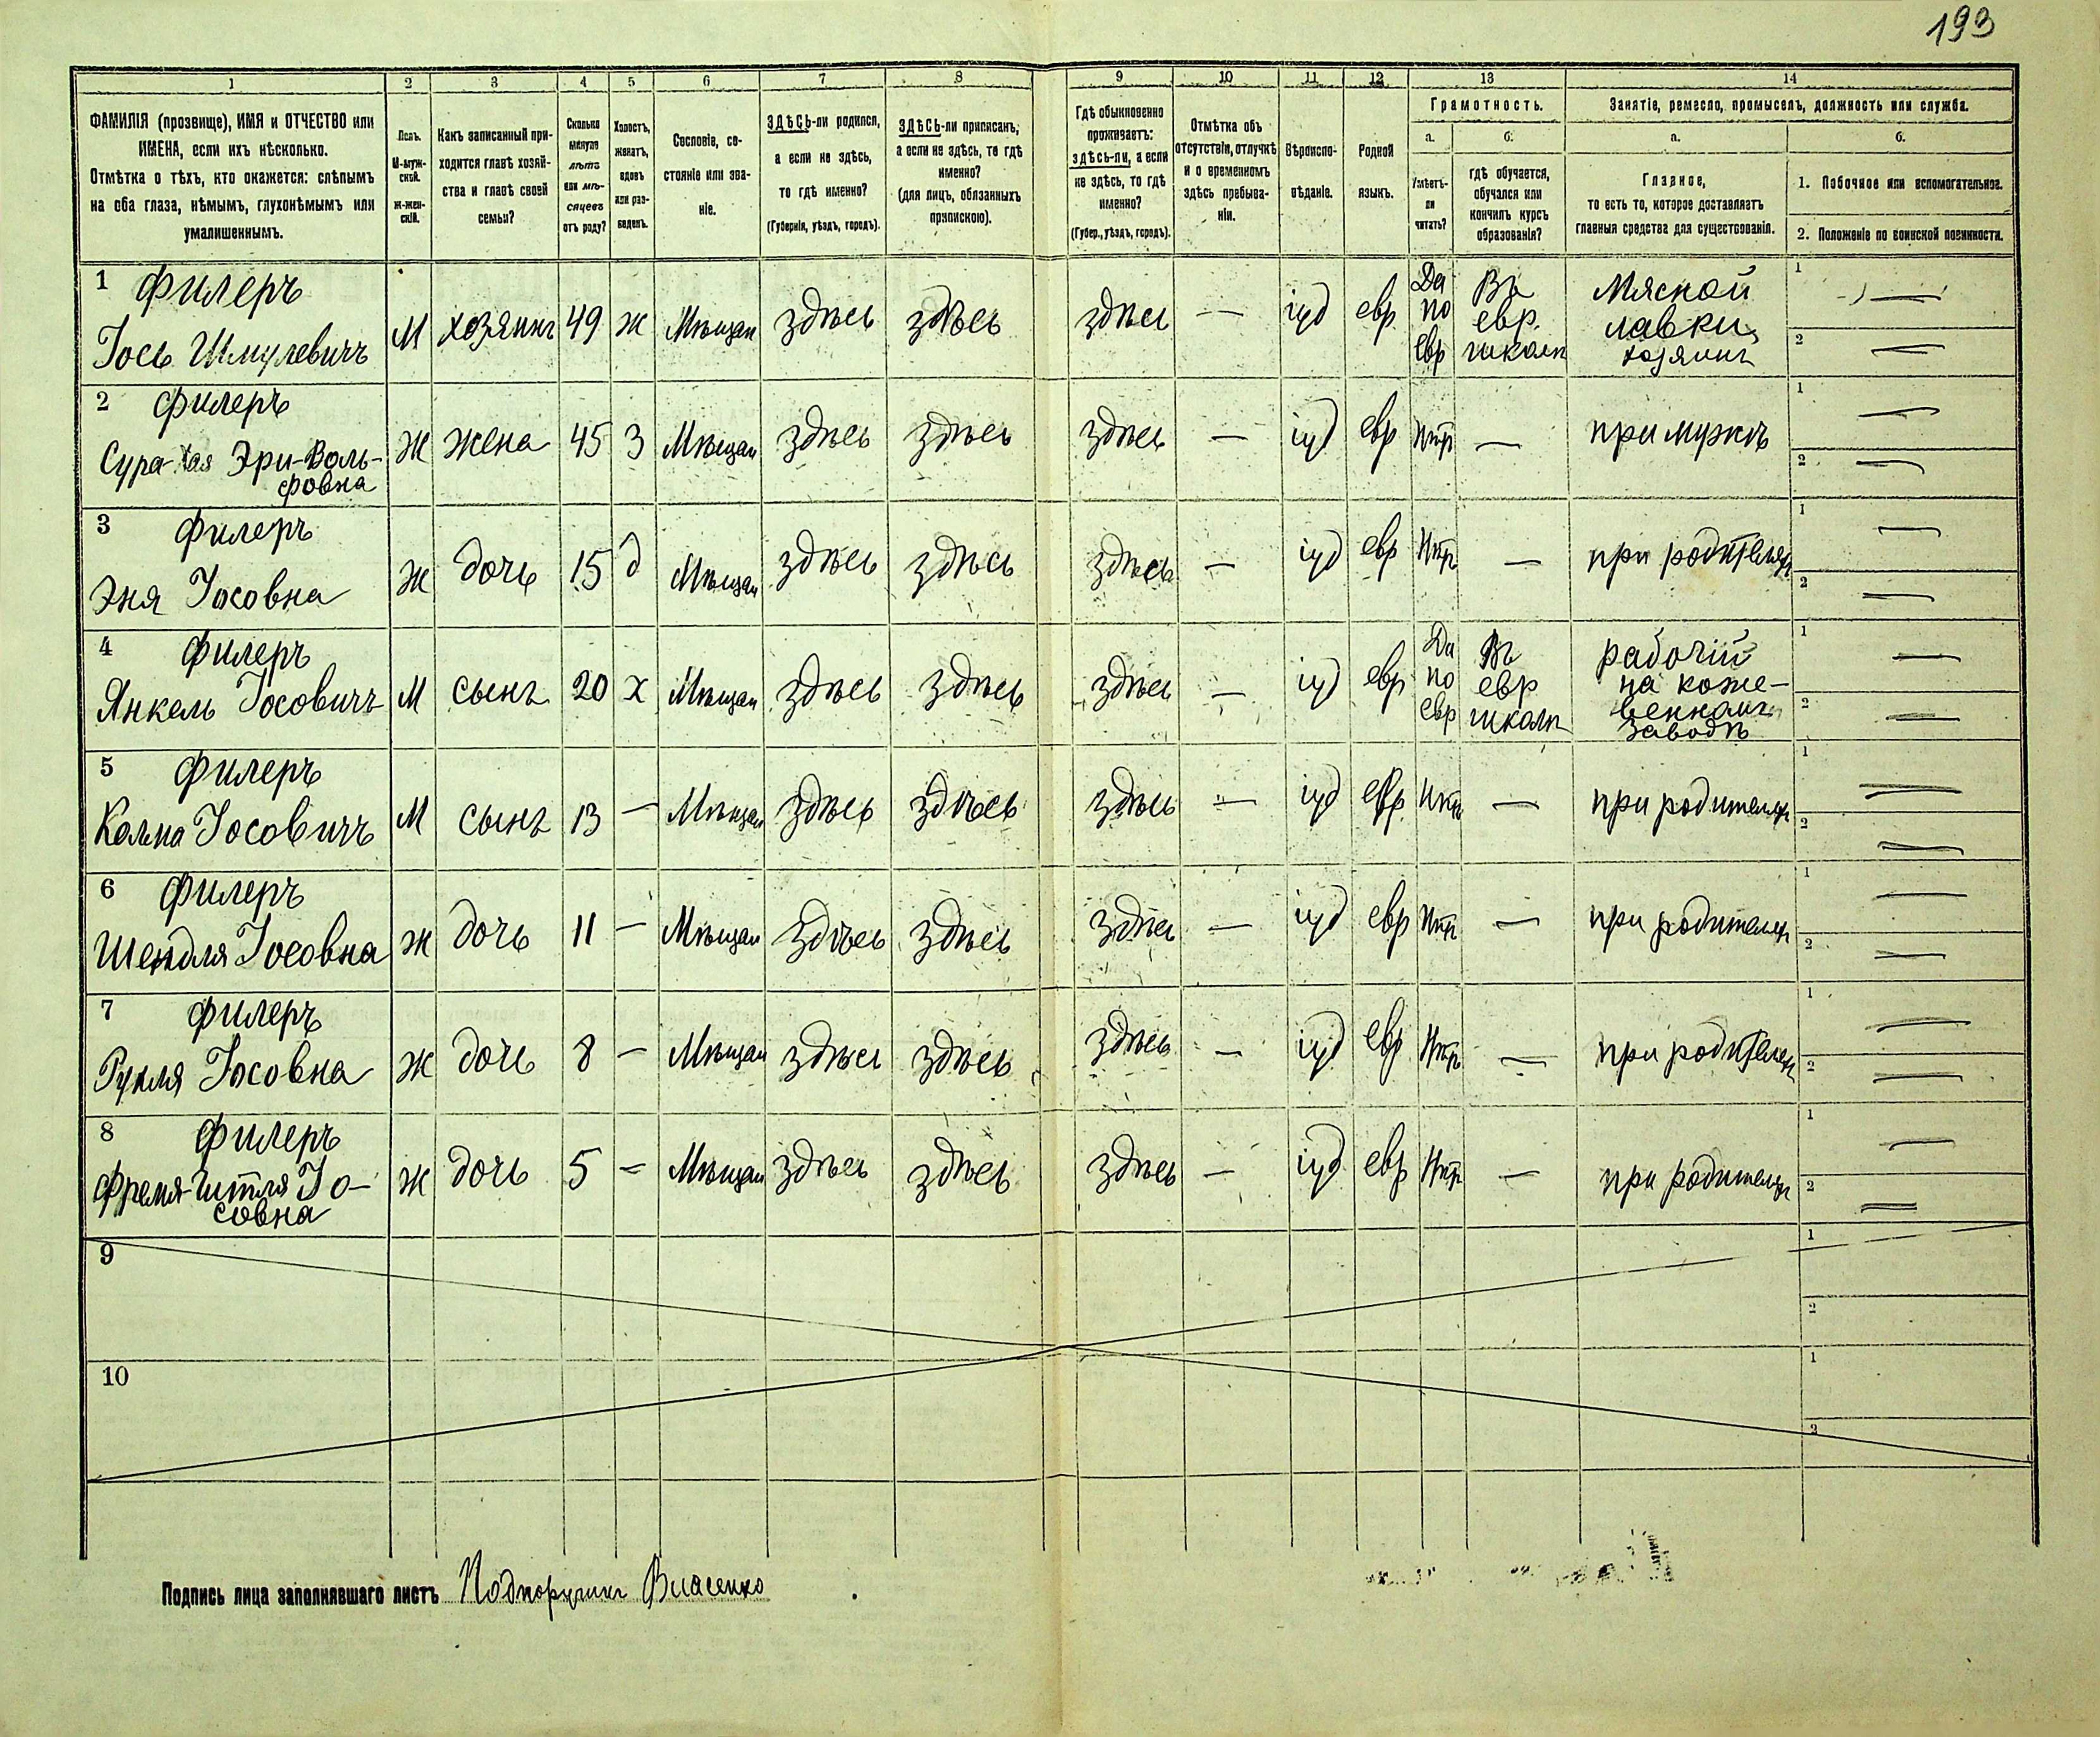 193
1 2 3 4 5 6 7 8 9 10 11 12 13 14
ФАМИЛІЯ (прозвище), ИМЯ и ОТЧЕСТВО или
ИМЕНА, если ихъ нѣсколько.
Отмѣтка о тѣхъ, кто окажется: слѣпымъ
на оба глаза, нѣмымъ, глухонѣмымъ или
умалишеннымъ.
Полъ.
М-муж-
ской.
ж-жен-
скій.
Какъ записанный при-
ходится главѣ хозяй-
ства и главѣ своей
семьи?
Сколько
минуло
лѣтъ
или мѣ-
сяцевъ
отъ роду?
Холостъ,
женатъ,
вдовъ
или раз-
веденъ.
Сословіе, со-
стояніе или зва-
ніе.
ЗДѢСЬ-ли родился,
а если не здѣсь,
то гдѣ именно?
(Губернія, уѣздъ, городъ).
ЗДѢСЬ-ли приписанъ,
а если не здѣсь, то гдѣ
именно?
(для лицъ, обязанныхъ
припискою).
Гдѣ обыкновенно
проживаетъ:
здѣсь-ли, а если
не здѣсь, то гдѣ
именно?
(Губер., уѣздъ, городъ).
Отмѣтка объ
отсутствіи, отлучкѣ
и о временномъ
здѣсь пребыва-
ніи.
Вѣроиспо-
вѣданіе.
Родной
языкъ.
Грамотность.
а.
Умѣетъ-
ли
читать?
б.
гдѣ обучается,
обучался или
кончилъ курсъ
образованія?
Занятіе, ремесло, промыселъ, должность или служба.
а.
Главное,
то есть то, которое доставляетъ
главныя средства для существованія.
б.
1. Побочное или вспомогательное.
2. Положеніе по воинской повинности.
1 Филеръ
Іось Шмулевичъ
М хозяинъ 49 ж Мѣщан здѣсь здѣсь здѣсь — іуд евр
Да
по
евр
Въ
евр.
школѣ
Мясной
лавки
хозяинъ
1 —
2 —
2 Филеръ
Сура-Хая Эри-Воль-
фовна
Ж жена 45 З Мѣщан здѣсь здѣсь здѣсь — іуд евр Нѣтъ — при мужѣ
1 —
2 —
3 Филеръ
Эня Іосовна
Ж дочь 15 д Мѣщан здѣсь здѣсь здѣсь — іуд евр Нѣтъ — при родителях
1 —
2 —
4 Филеръ
Янкель Іосовичъ
М сынъ 20 х Мѣщан здѣсь здѣсь здѣсь — іуд евр
Да
по
евр
Въ
евр
школѣ
рабочій
на коже-
венномъ
заводѣ
1 —
2 —
5 Филеръ
Кельма Іосовичъ
М сынъ 13 — Мѣщан здѣсь здѣсь здѣсь — іуд евр Нѣтъ — при родителях
1 —
2 —
6 Филеръ
Шендля Іосовна
Ж дочь 11 — Мѣщан здѣсь здѣсь здѣсь — іуд евр Нѣтъ — при родителях
1 —
2 —
7 Филеръ
Рухля Іосовна
Ж дочь 8 — Мѣщан здѣсь здѣсь здѣсь — іуд евр Нѣтъ — при родителях
1 —
2 —
8 Филеръ
Фрема-Гитля Іо-
совна
Ж дочь 5 — Мѣщан здѣсь здѣсь здѣсь — іуд евр Нѣтъ — при родителях
1 —
2 —
9
1
2
10
1
2
Подпись лица заполнявшаго листъ Подпоручикъ Власенко